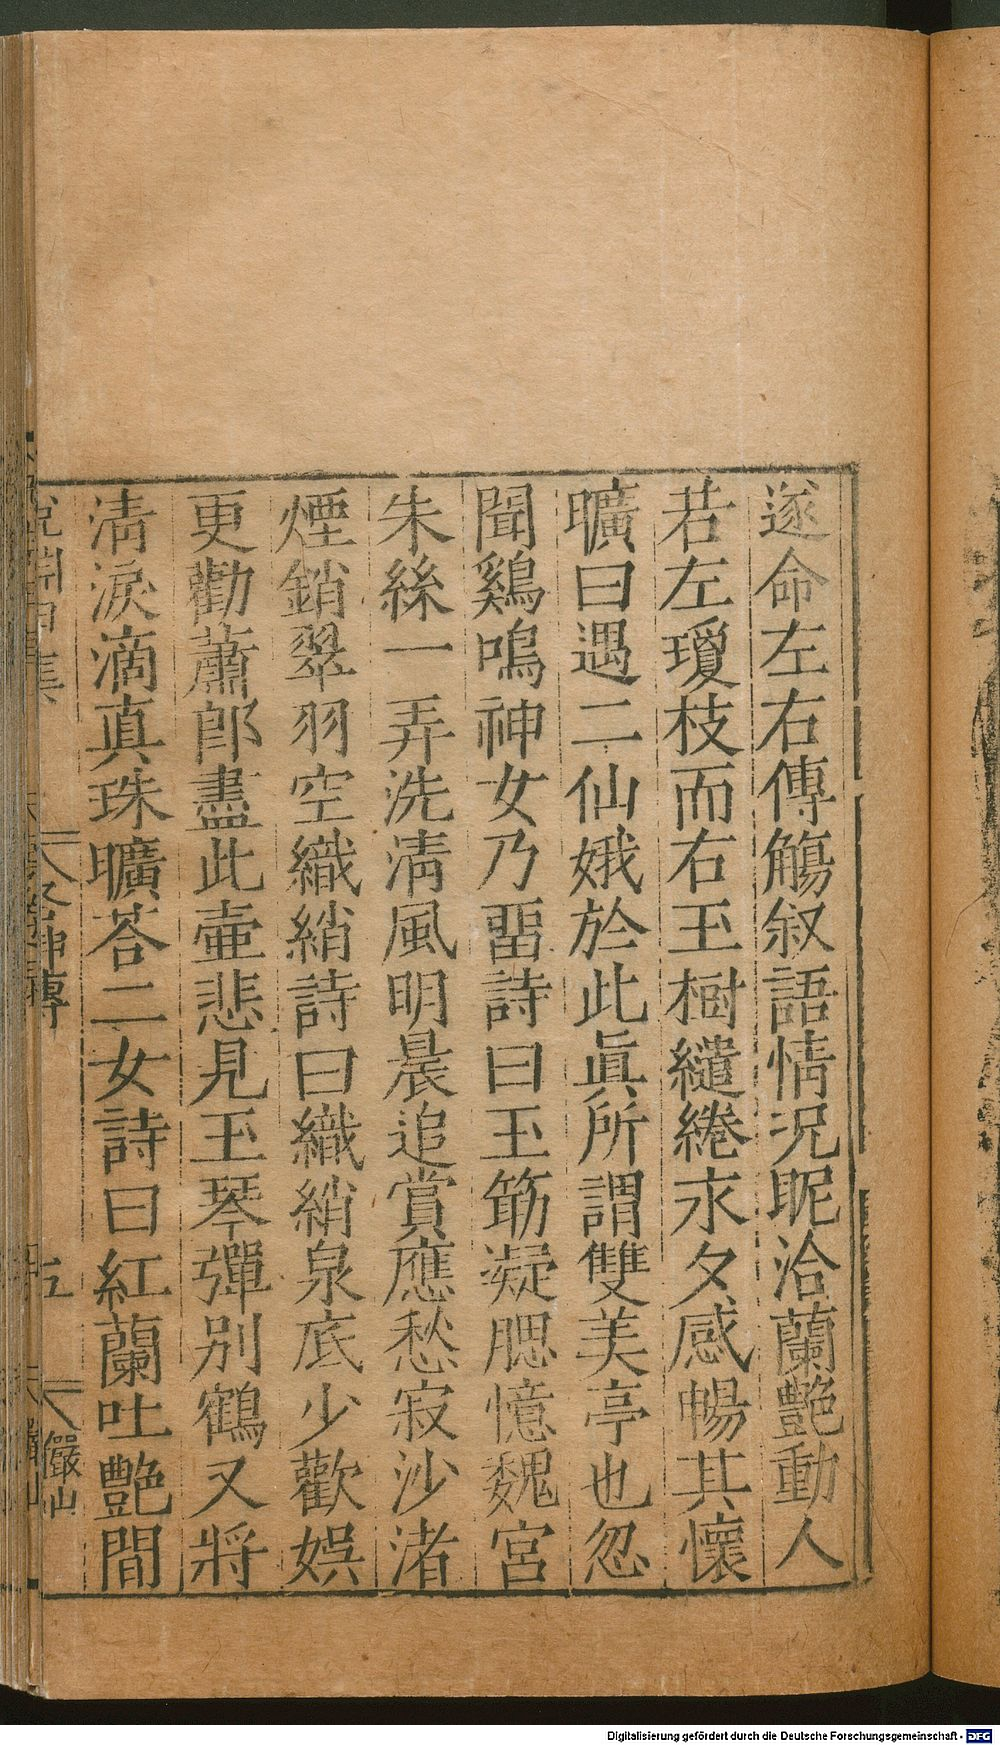 遂命左右傳觴叙語情況昵洽蘭艷動人
若左瓊枝而右玉樹繾綣永夕感暢其懷
曠曰遇二仙娥於此眞所謂雙美亭也忽
聞鷄鳴神女乃畱詩曰玉筯凝腮憶魏宮
朱絲一弄洗淸風明晨追賞應愁寂沙渚
煙銷翠羽空織綃詩曰織綃泉底少歡娛
更勸蕭郎盡此壷悲見玉琴彈別鶴又將
淸淚滴真珠曠荅二女詩曰紅蘭吐艷間
五
儼山
Digitalisierung gefördert durch die Deutsche Forschungsgemeinschaft - DFG